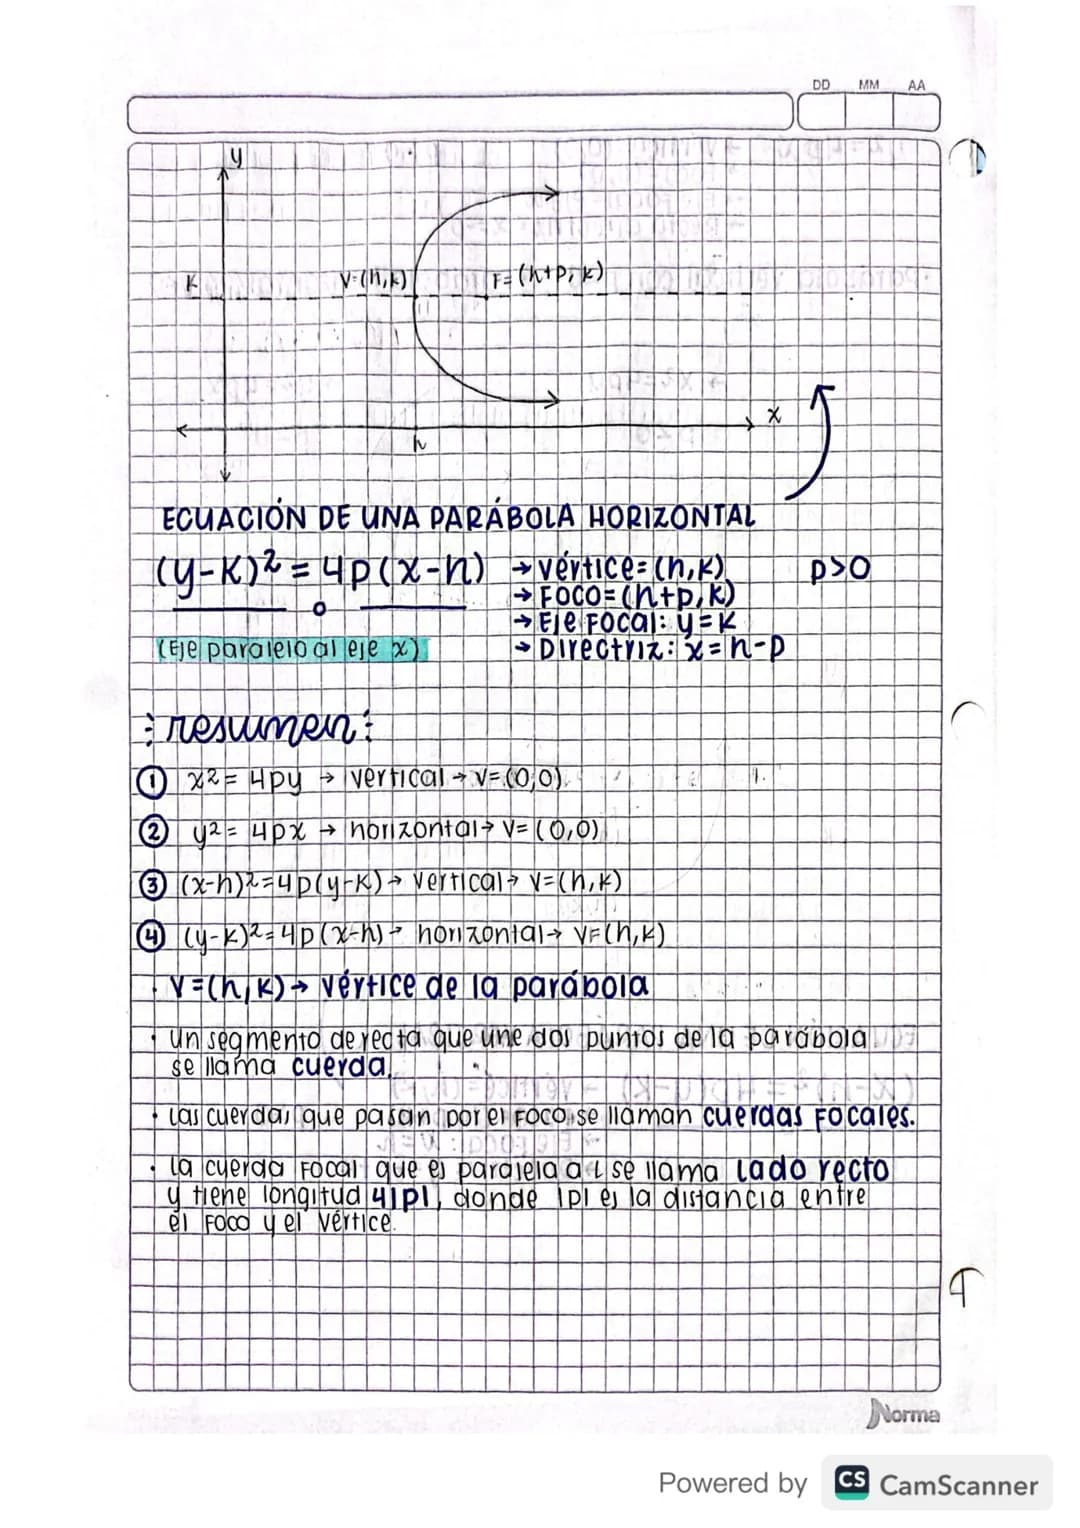 DD MM AA
y
K V=(h,k) F=(h+p,k)
x
h
ECUACIÓN DE UNA PARÁBOLA HORIZONTAL
(y-k)² = 4p(x-h) → vértice=(h,k) p>0
→ Foco=(h+p,k)
→ Eje Focal: y=k
(Eje paralelo al eje x) → Directriz: x=h-p
resumen:
① x²=4py → vertical → V=(0,0)
② y²=4px → horizontal → V=(0,0)
③ (x-h)²=4p(y-k) → vertical → V=(h,k)
④ (y-k)²=4p(x-h) → horizontal → V=(h,k)
V=(h,k) → vértice de la parábola
· Un segmento de recta que une dos puntos de la parábola
se llama cuerda.
· Las cuerdas que pasan por el Foco se llaman cuerdas Focales.
· La cuerda Focal que es paralela a L se llama lado recto
y tiene longitud 4|p|, donde |p| es la distancia entre
el Foco y el vértice.
Norma
Powered by CS CamScanner